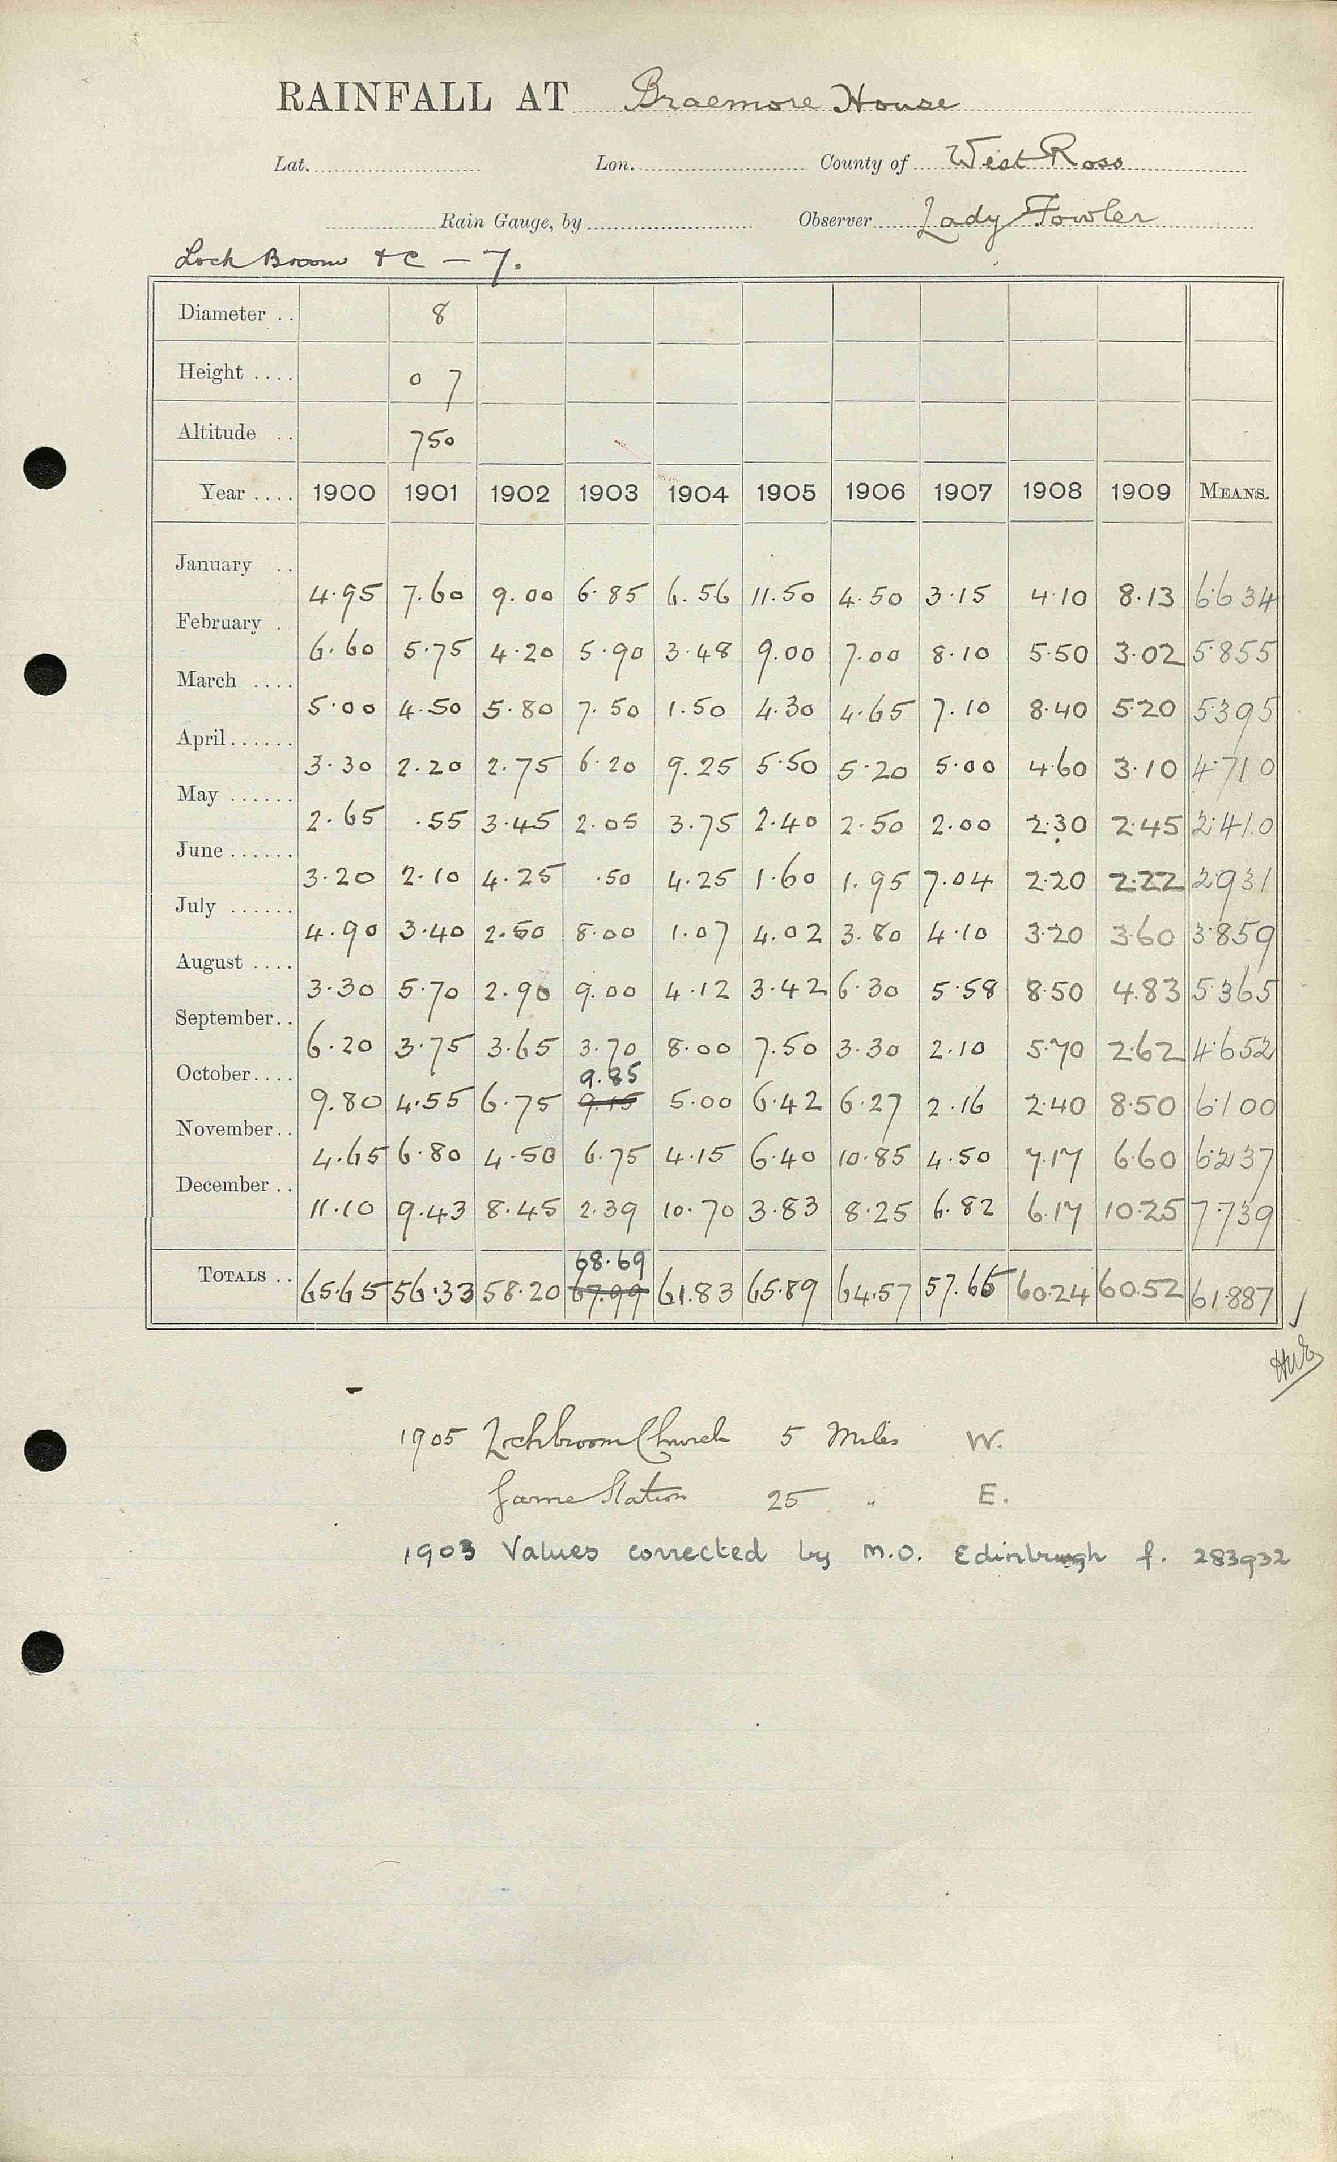 RAINFALL AT Braemore House
Lat. Lon. County of West Ross
Rain Gauge, by Observer Lady Fowler
Loch Broom &c – 7.
Diameter .. 8
Height .... 0 7
Altitude .. 750
Year .... 1900 1901 1902 1903 1904 1905 1906 1907 1908 1909 MEANS.
January .. 4.95 7.60 9.00 6.85 6.56 11.50 4.50 3.15 4.10 8.13 6.634
February . 6.60 5.75 4.20 5.90 3.48 9.00 7.00 8.10 5.50 3.02 5.855
March .... 5.00 4.50 5.80 7.50 1.50 4.30 4.65 7.10 8.40 5.20 5.395
April...... 3.30 2.20 2.75 6.20 9.25 5.50 5.20 5.00 4.60 3.10 4.710
May ...... 2.65 .55 3.45 2.05 3.75 2.40 2.50 2.00 2.30 2.45 2.410
June...... 3.20 2.10 4.25 .50 4.25 1.60 1.95 7.04 2.20 2.22 2.931
July ...... 4.90 3.40 2.50 8.00 1.07 4.02 3.80 4.10 3.20 3.60 3.859
August .... 3.30 5.70 2.90 9.00 4.12 3.42 6.30 5.58 8.50 4.83 5.365
September.. 6.20 3.75 3.65 3.70 8.00 7.50 3.30 2.10 5.70 2.62 4.652
9.85
October.... 9.80 4.55 6.75 9.15 5.00 6.42 6.27 2.16 2.40 8.50 6.100
November.. 4.65 6.80 4.50 6.75 4.15 6.40 10.85 4.50 7.17 6.60 6.237
December .. 11.10 9.43 8.45 2.39 10.70 3.83 8.25 6.82 6.17 10.25 7.739
68.69
TOTALS .. 65.65 56.33 58.20 67.99 61.83 65.89 64.57 57.65 60.24 60.52 61.887
1905 Lochbroom Church 5 Miles W.
Garve Station 25 " E.
1903 Values corrected by M.O. Edinburgh f. 283932